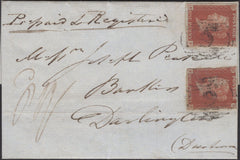 Prepaid & Registered
Messrs Joseph Pease &
Bankers
Darlington
(Durham